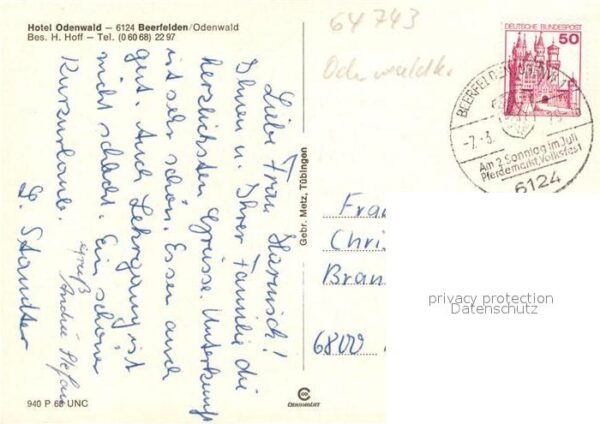 Hotel Odenwald — 6124 Beerfelden/Odenwald
Bes. H. Hoff — Tel. (0 60 68) 22 97
64743
Odenwaldk.
Liebe Frau
Ihnen u. Ihrer Familie die
herzlichsten Grüsse. Unterkunft
ist sehr schön. Essen auch
gut. Auch Lehrgang ist
nicht schlecht. Ein schöner
Kurzurlaub.
André Stefan
Gebr. Metz, Tübingen
DEUTSCHE BUNDESPOST
50
BEERFELDEN
-7.-3.
Am 2. Sonntag im Juli
Pferdemarkt, Volksfest
6124
Frau
Chri
Bran
6800
privacy protection
Datenschutz
940 P 68 UNC